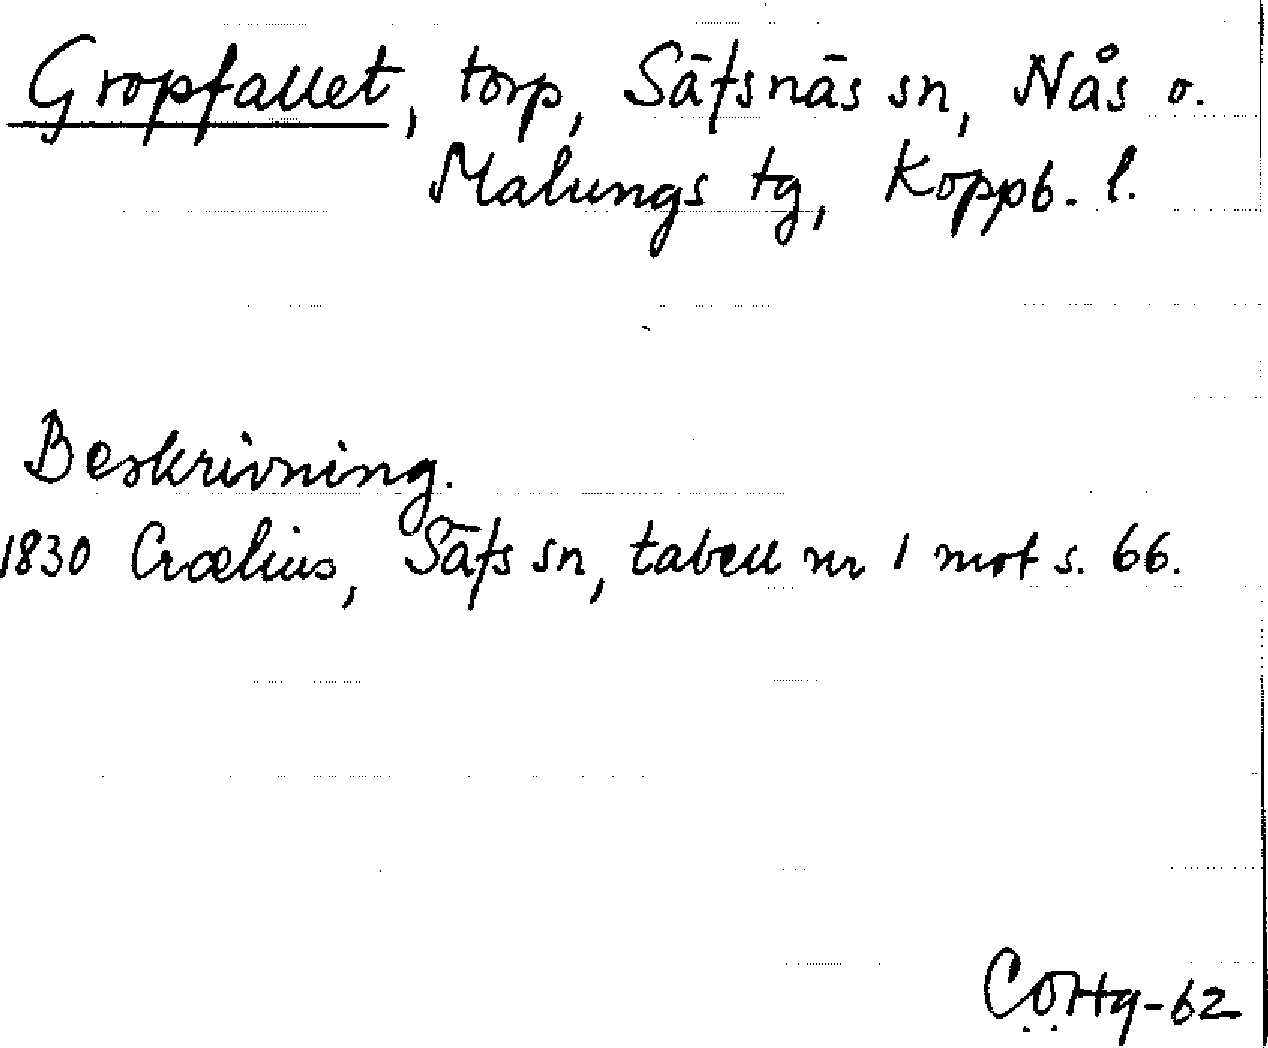 Gropfallet, torp, Säfsnäs sn, Nås o.
Malungs tg, Koppb. l.
Beskrivning.
1830 Crælius, Säfs sn, tabell nr 1 mot s. 66.
-62